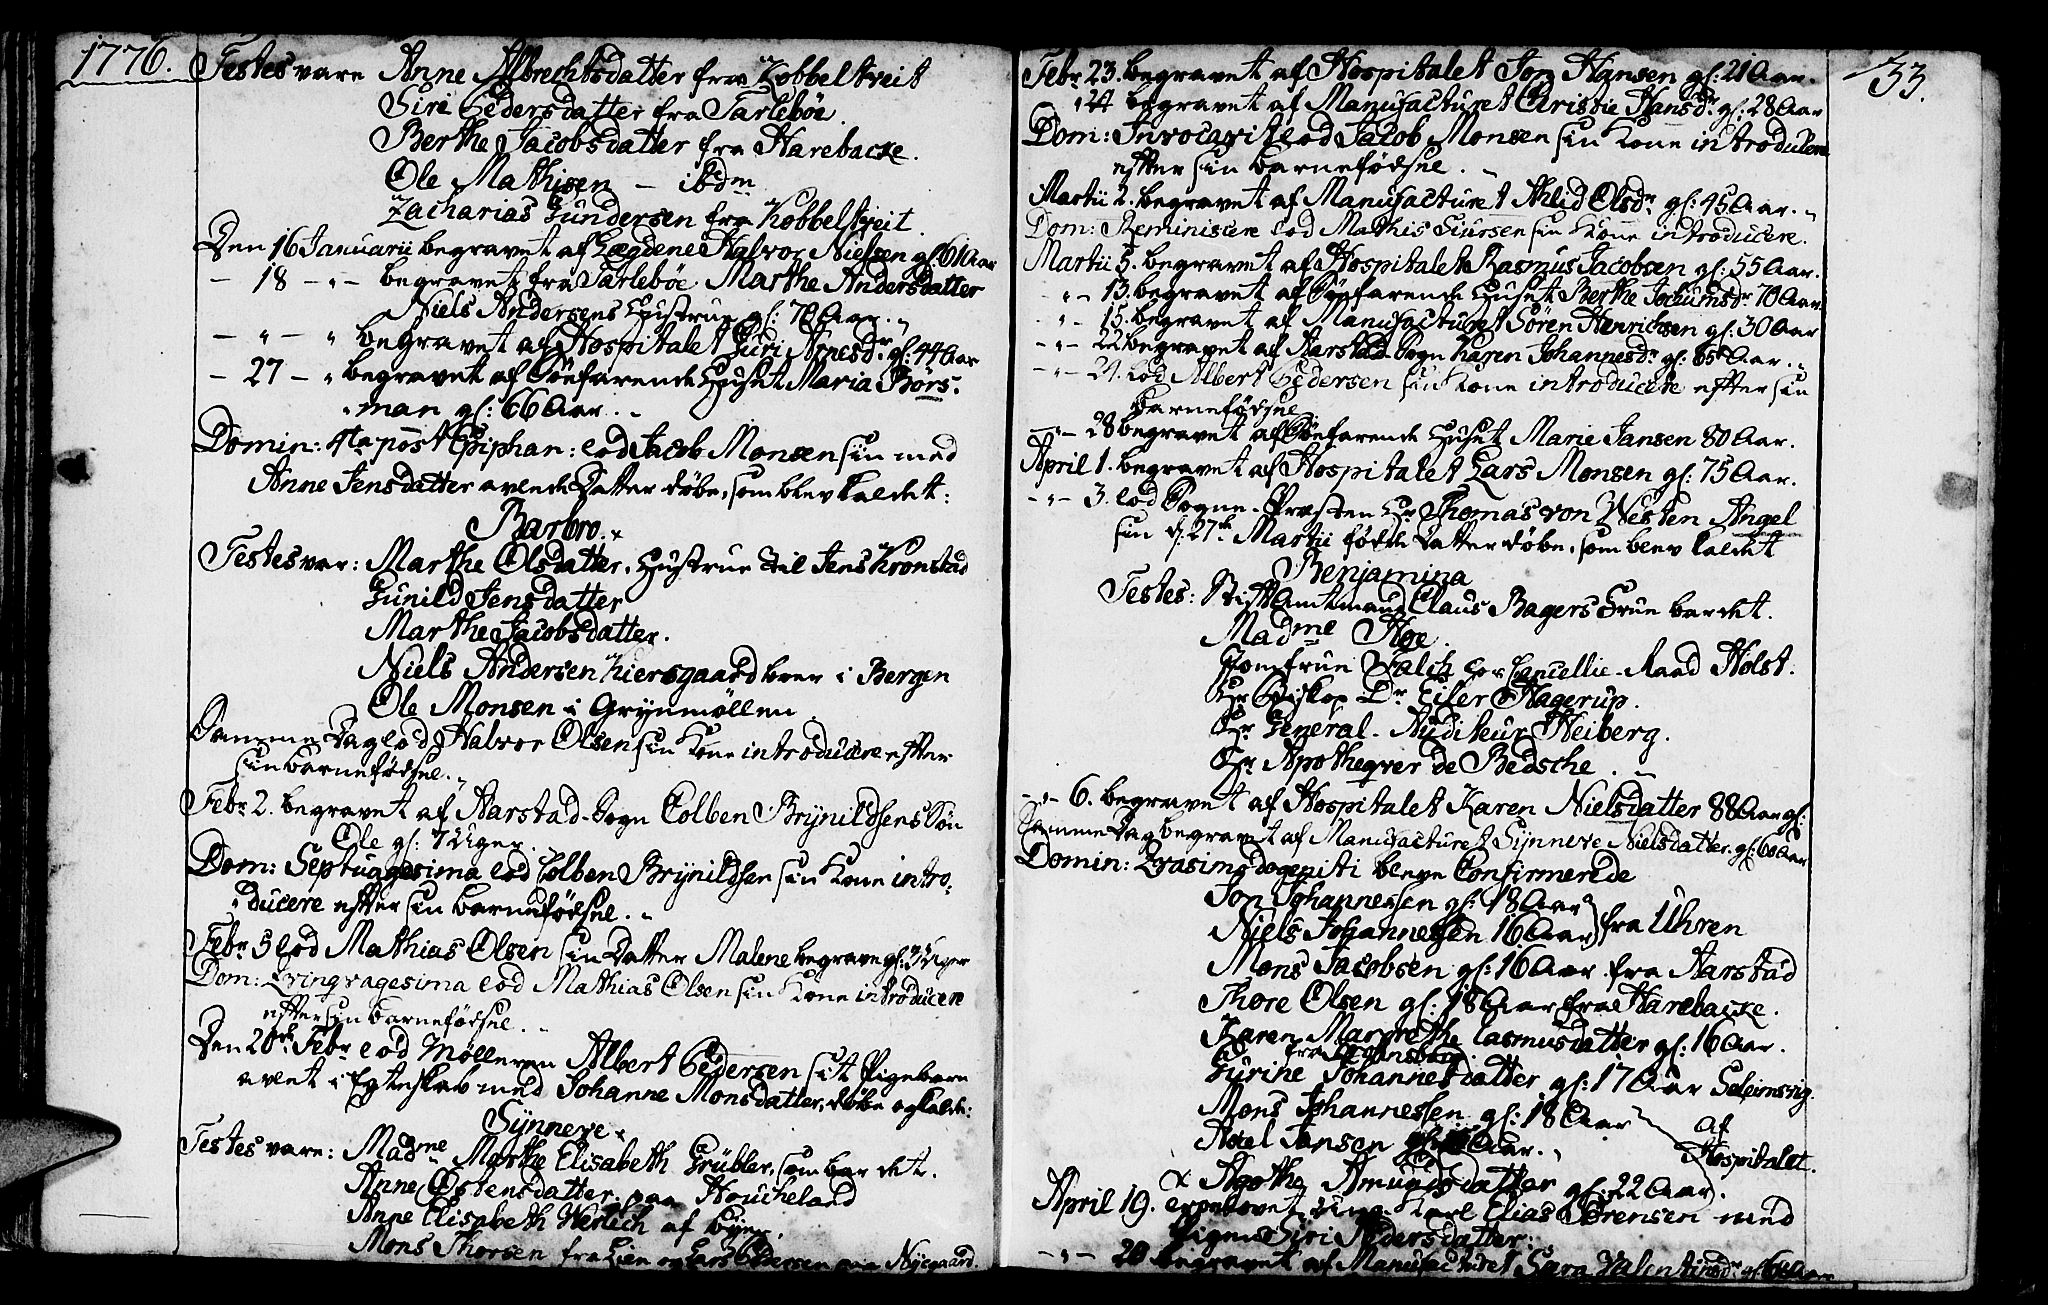 1776.
Testes vare Anne Albrechtsdatter fra Kobbeltveit
Siri Pedersdatter fra Tarlebøe.
Berthe Jacobsdatter fra Harebacke.
Ole Mathisen — ibdm
Zacharias Gundersen fra Kobbeltveit.
Den 16 Januarii begravet af Lægdene Halvor Nielsen gl. 61 Aar
- 18 - " - begravet fra Tarlebøe Marthe Andersdatter
Niels Andersens Hustrue gl: 70 Aar. "
- " - " begravet af Hospitalet Guri Arnesdr gl: 44 Aar
- 27 - " begravet af Søefarende Huset Maria Børs-
man gl: 66 Aar. "
Domin: 4ta post Epiphan: lod Jacob Monsen sin med
Anne Jensdatter avlede Datter døbe, som blev kaldet:
Barbro.
Testes var: Marthe Olsdatter, Hustrue til Jens Kronstad
Gunild Jensdatter
Marthe Jacobsdatter.
Niels Andersen boer i Bergen
Ole Monsen i Grynmøllen
Samme Dag lod Halvor Olsen sin Kone introducere efter
sin barnefødsel. "
Febr 2. begravet af Aarstad-Sogn Colben Brynildsens Søn
Ole gl: 7 Uger.
Dom: Septuagesima lod Colben Brynildsen sin Kone intro-
ducere efter sin barnefødsel. "
Febr 5 lod Mathias Olsen sin Datter Malene begrave gl. 3 Uger
Dom: Qvinqvagesima lod Mathias Olsen sin Kone introducere
efter sin barnefødsel. "
Den 20de Febr lod Mølleren Albert Pedersen sit Pigebarn
avlet i Egteskab med Johanne Monsdatter, døbe og kalde:
Synneve
Testes vare: Madme Marthe Elisabeth Grübler, som bar det.
Anne Østensdatter paa Houcheland
Anne Elisabeth Werlich af Byen.
Mons Thorsen fra Lien og Lars Pedersen paa Nyegaard.
33.
Febr 23. begravet af Hospitalet Jon Hansen gl: 21 Aar.
" 24 begravet af Manufacturet Christie Hansdr gl: 28 Aar
Dom: Invocavit lod Jacob Monsen sin Kone introducere
efter sin barnefødsel. "
Martii 2. begravet af Manufacturet Ahlid Olsdr gl: 45 Aar. "
Dom: Reminiscere lod Mathis Siursen sin Kone introducere.
Martii 5. begravet af Hospitalet Rasmus Jacobsen gl: 55 Aar.
- " - 13. begravet af Søefarende Huset Berthe Jochumsdr 70 Aar
- " - 15. begravet af Manufacturet Sören Henrichsen gl: 30 Aar
- " - 22 begravet af Aarstad Sogn Karen Johannesdr gl: 65 Aar. "
- " - 21. lod Albert Pedersen sin Kone introducere efter sin
barnefødsel
- " - 28 begravet af Søefarende Huset Marie Jansen 80 Aar.
April 1. begravet af Hospitalet Lars Monsen gl: 75 Aar.
- " - 3. lod Sogne-Præsten Hr Thomas von Westen Angel
sin d. 27de Martii fødde Datter døbe, som blev kaldet
Benjamina
Testes: Stiftamtmand Claus Bagers Frue bar det.
Madme Hoe.
Jomfrue Walch for Cancellie-Raad Holst.
Hr Biskop Dr Eiler Hagerup.
Hr General-Auditeur Heiberg.
Hr Apotheqver de Besche. "
- " - 6. begravet af Hospitalet Karen Nielsdatter 88 Aar gl:
Samme Dag begravet af Manufacturet Synneve Nielsdatter. gl: 60 Aar
Domin: Qvasimodogeniti bleve Confirmerede
Jon Johannessen gl: 18 Aar
Niels Johannessen 16 Aar } fra Uhren
Mons Jacobsen gl: 16 Aar fra Aarstad
Thore Olsen gl: 18 Aar fra Harebacke.
Karen Margrethe Rasmusdatter gl: 16 Aar.
Gurine Johannesdatter gl: 17 Aar Seleimsvig.
Mons Johannessen gl: 18 Aar
Axel Jansen gl: Aar. "
af Hospitalet.
x Agothe Amundsdatter gl: 22 Aar.
April 19. Karl Elias Sörensen med
Pigen Siri Pedersdatter.
- " - 20 begravet af Manufacturet Sara Valentinsdr gl: 60 Aar